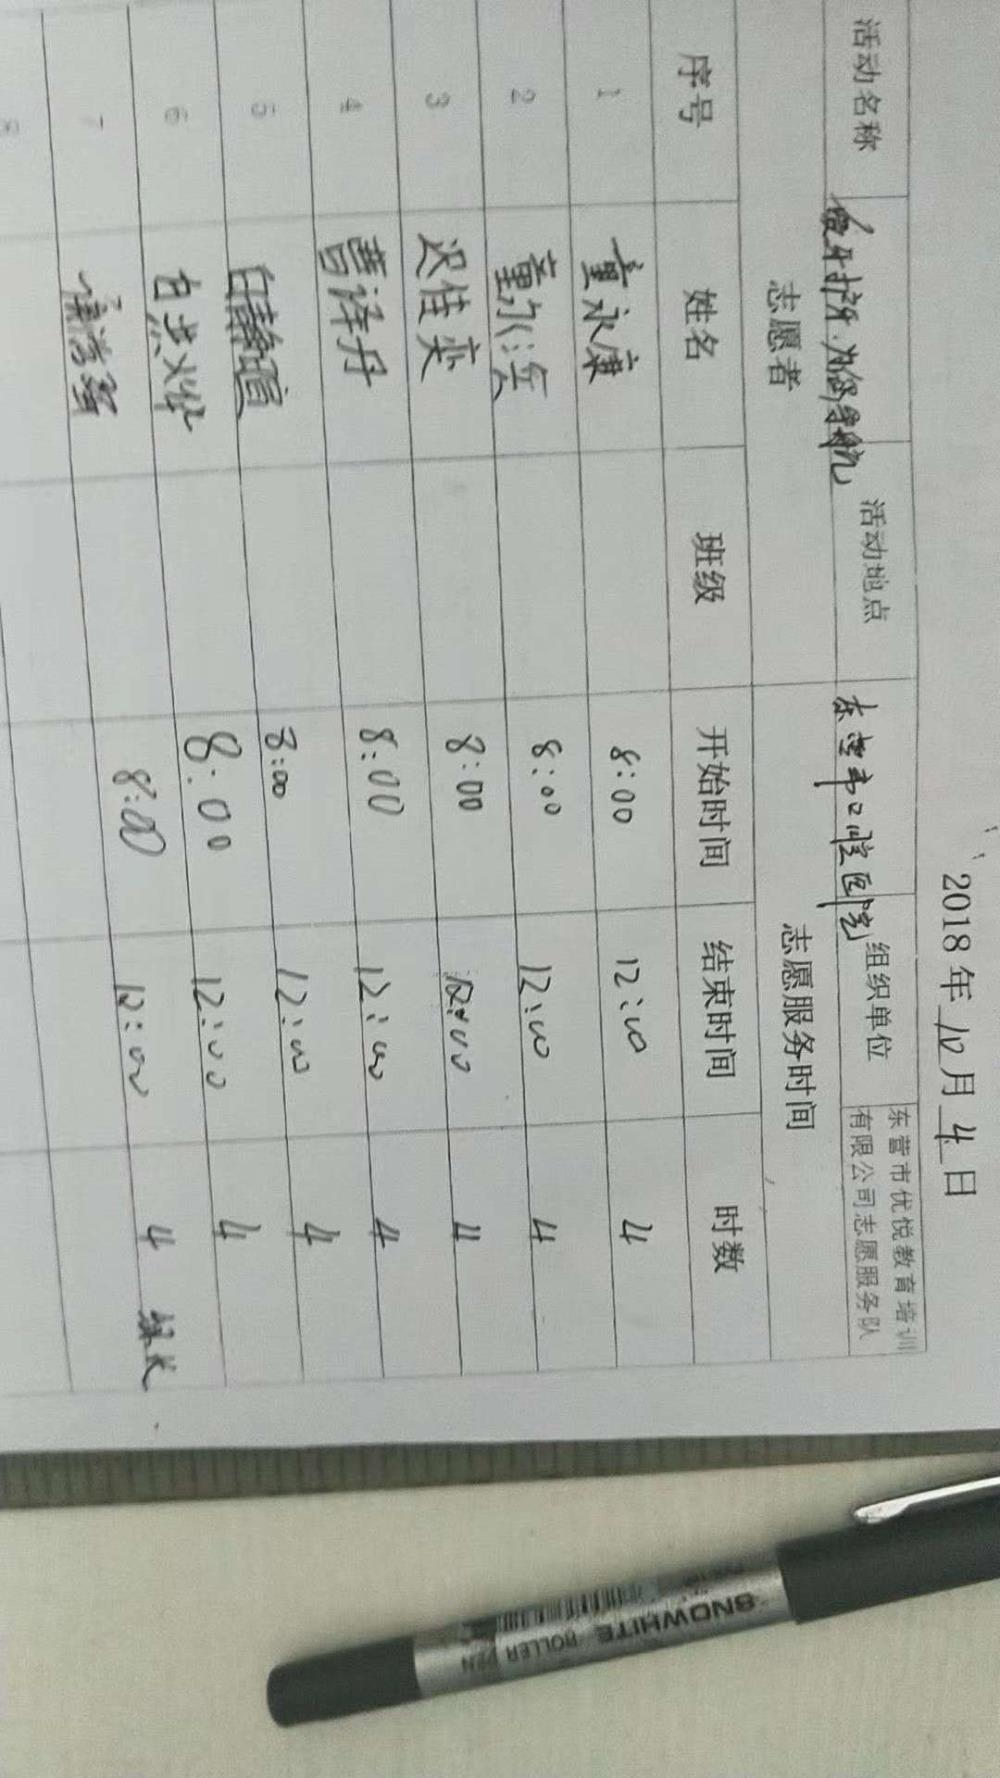 2018年10月4日
活动名称 爱牙护牙·为你导航 活动地点 东营市口腔医院 组织单位 东营市优悦教育培训
有限公司志愿服务队
志愿者 志愿服务时间
序号 姓名 班级 开始时间 结束时间 时数
1 童永康 8:00 12:00 4
2 8:00 12:00 4
3 迟佳奕 8:00 12:00 4
4 曹泽丹 8:00 12:00 4
5 白靖暄 8:00 12:00 4
6 8:00 12:00 4
7 8:00 12:00 4
8
SNOWHITE ROLLER PEN